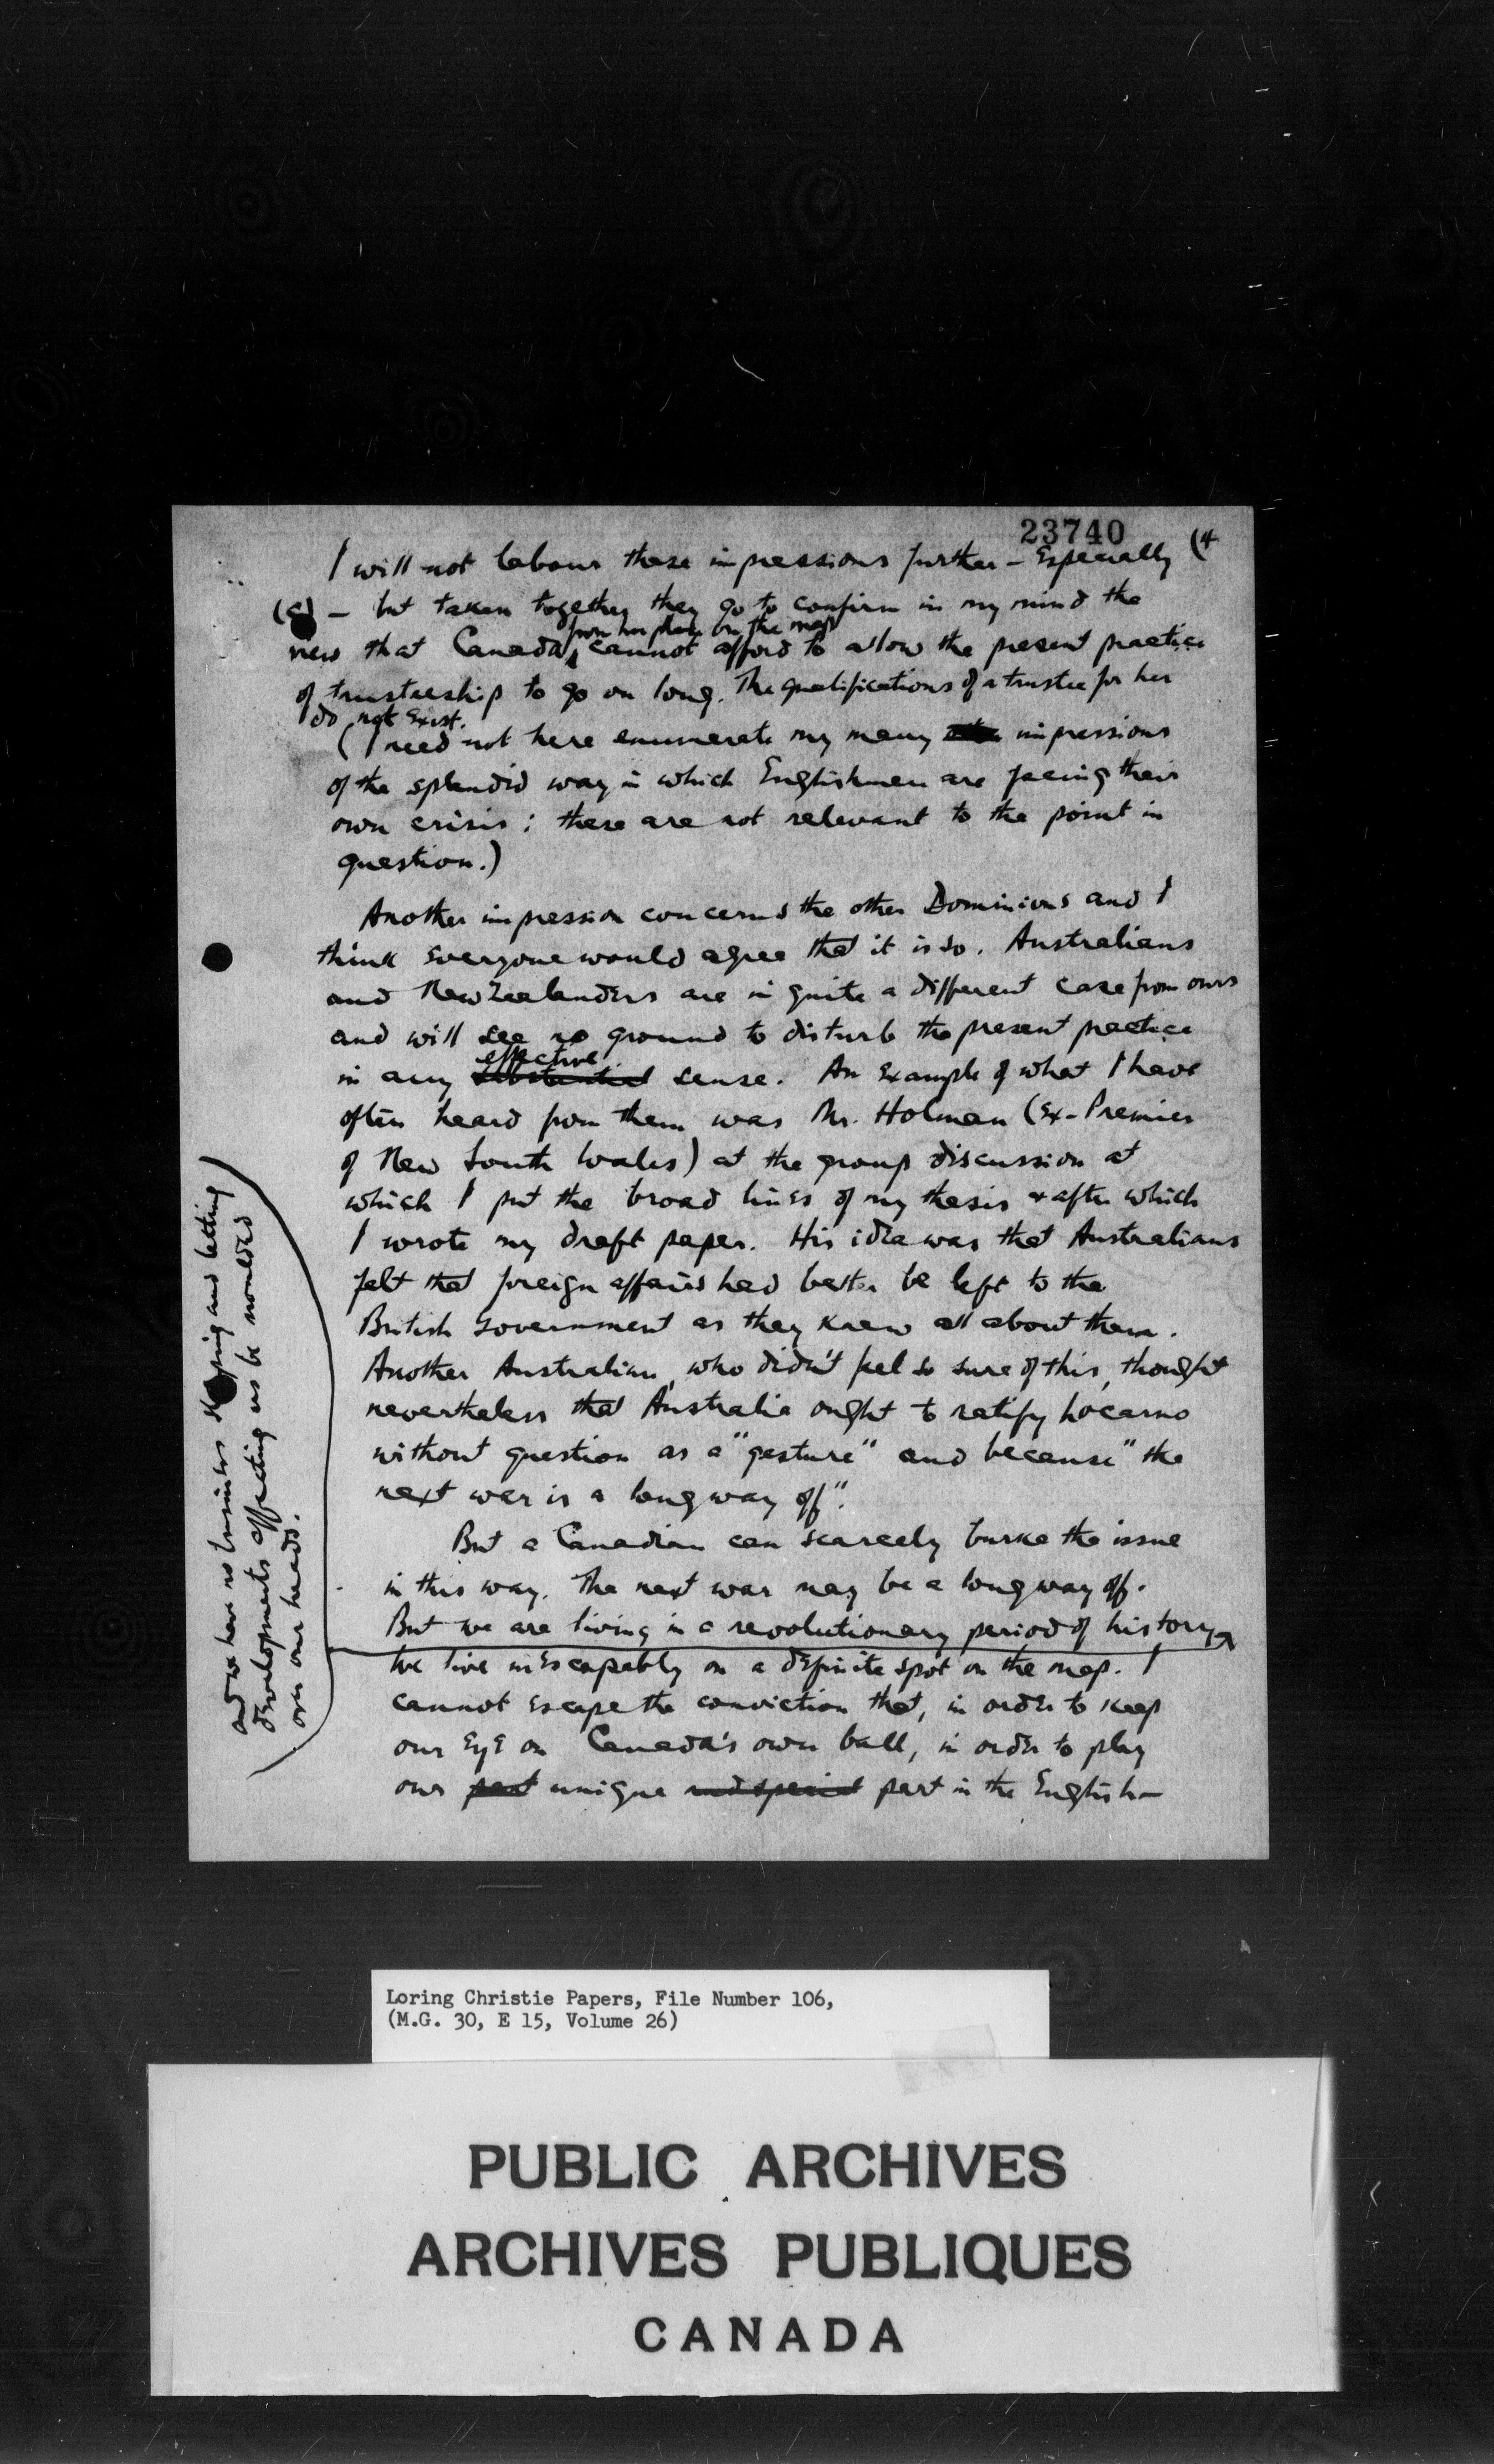 23740
(4
I will not labour these impressions further – Especially
(c) – but taken together they go to confirm in my mind the
from her place on the map
view that Canada cannot afford to allow the present practice
of trusteeship to go on long. The qualifications of a trustee for her
do not Exist.
(I need not here enumerate my many impressions
of the splendid way in which Englishmen are facing their
own crisis; these are not relevant to the point in
question.)
Another impression concerns the other Dominions and I
think Everyone would agree that it is so. Australians
and New Zealanders are in quite a different case from ours
and will see no ground to disturb the present practice
effective
in any substantial sense. An Example of what I have
often heard from them was Mr. Holman (Ex-Premier
of New South Wales) at the group discussion at
which I put the broad lines of my thesis & after which
I wrote my draft paper. His idea was that Australians
felt that foreign affairs had better be left to the
British Government as they knew all about them.
Another Australian, who didn't feel so sure of this, thought
nevertheless that Australia ought to ratify Locarno
without question as a "gesture" and because "the
next war is a long way off".
But a Canadian can scarcely burke the issue
in this way. The next war may be a long way off.
But we are living in a revolutionary period of history
and we have no business sleeping and letting
developments affecting us be moulded
over our heads.
We live inescapably on a definite spot on the map. I
cannot escape the conviction that, in order to keep
our EyE on Canada's own ball, in order to play
our part unique and special part in the English-
Loring Christie Papers, File Number 106,
(M.G. 30, E 15, Volume 26)
PUBLIC ARCHIVES
ARCHIVES PUBLIQUES
CANADA